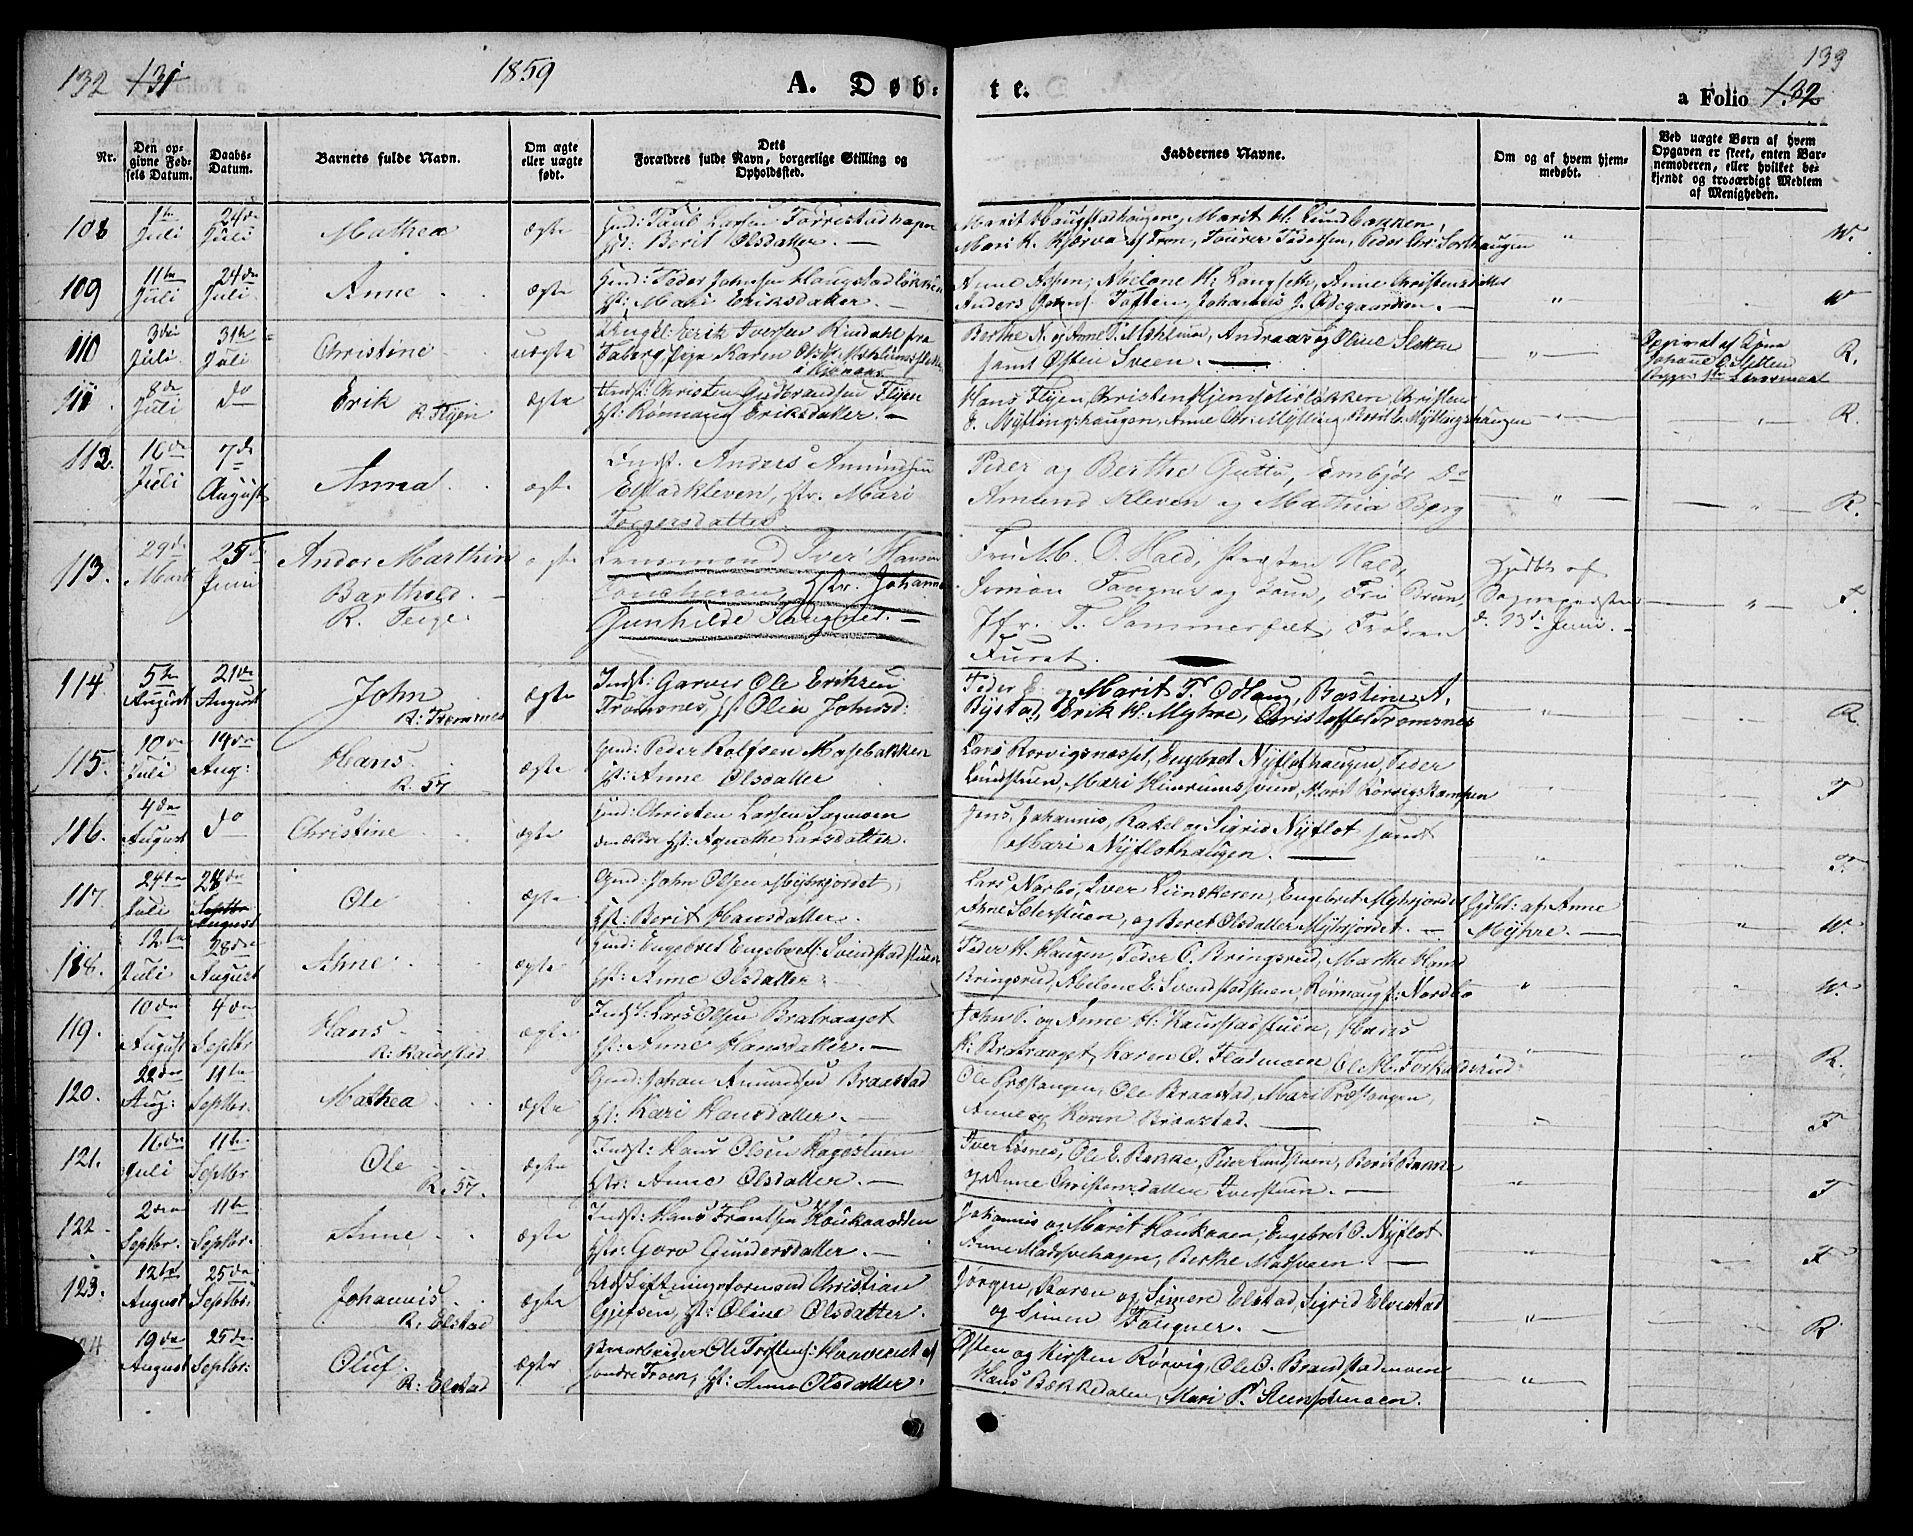 132 131 1859 A. Døb-
te. 133
a Folio 132
Nr.
Den op-
givne Fød-
sels Datum.
Daabs-
Datum.
Barnets fulde Navn.
Om ægte
eller uægte
født.
Dets
Forældres fulde Navn, borgerlige Stilling og
Opholdssted.
Faddernes Navne.
Om og af hvem hjem-
medøbt.
Ved uægte Børn af hvem
Opgaven er skeet, enten Bar-
nemoderen, eller hvilket be-
kjendt og troværdigt Medlem
af Menigheden.
108 1ste Juli 24de Juli Mathea ægte
Gmd: Paul Larsen
Hst: Berit Olsdatter. —
Marit Haugstadhaugen, Marit H. Lundbakken,
W.
109 11te Juli 24de Juli. Anne ægte
Gmd: Peder Johnsen Haugstadløkken
Hst: Mari Eriksdatter —
Anne Aspen, Abelone H: Langseth, Anne Christensdatter
Anders Toften, Johannis J. Odegaarden. —
" W
110 3die Juli. 31te Juli Christine uægte
Ungkl: Erik Iversen Rindahl fra
Faaberg, Pige Karen
Berthe N. og Anne Mæhlum, Andreas og Oline Sletten
samt Østen Sveen. —
" Opgivet af Kone
Johanne Sletten
R.
111 8de Juli do Erik
R. Flyen
ægte
Indst: Christen Gudbrandsen Flyen
Hst: Rønnaug Eriksdatter. —
Hans Flyen, Christen Hjemsdisløkken, Christen
Myllingshaugen, Anne Chr. Mylling, Berit E. Myllingshaugen
" R.
112. 16de Juli 7de August Anna ægte
Indst. Anders Amundsen
Elstadkleven, Hstr: Mari
Torgersdatter.
Peder og Berthe Guttu, Embjør Do
Amund Kleven og Mathia Berg
" R.
113. 29de Marts 25de Juni Andor Marthin
Barthold —
R. Teige.
ægte
Lensmand Iver
Hstr. Johanne
Gunhilde Faugner. —
Fru M. O. Hald, Præsten Hald,
Simon Faugner og Kone, Fru Brun,
Jfr. T. Sommerfelt, Frøken
Furet.
Hjdbt af
Sognepresten
d. 23de Juni. —
" F.
114 5te August 21de August John
R. Tromsnes
ægte
Indst: Garver Ole Eriksen
Tromsnes, Hst Olea Johnsd:
Peder E: og Marit P. Odlaug, Bastine A.
Bystad, Erik H. Myhre, Christoffer Tromsnes
" R.
115. 10de Juli 14de Aug: Hans
R. 57
ægte
Gmd: Peder Rolfsen Mosebakken
Hst: Anne Olsdatter
Lars Rørvignesset, Engebret Nyflothaugen, Peder
Lundstuen, Mari Hinrumssveen, Marit Rørvigskampen
F
116. 4de August do Christine ægte
Gmd: Christen Larsen Sagmoen
den ældre Hst: Agnethe Larsdatter.
Jens, Johannis, Rakel og Sigrid Nyflot samt
Mari Nyflothaugen. —
" F.
117. 24de Juli 28de Septbr August Ole ægte
Gmd: John Olsen Myhrjordet,
Hst: Berit Hansdatter.
Lars Norbø, Iver Lunskeren, Engebret Myhrjordet
Anne Sæterstuen, og Beret Olsdatter Myhrjordet. —
Hjdbt: af Anne
Myhre. —
" W.
118. 12te Juli 28de August Anne ægte
Gmd: Engebret Engebreth: Svendstadstuen
Hst: Anne Olsdatter.
Peder H. Haugen, Peder C. Bringsrud, Marthe Hans
Bringsrud, Abelone E. Svendstadstuen, Rønnaug P. Nordbø
" W.
119. 10de August 4de Septbr Hans
R: Kaurstad
ægte
Indst: Lars Olsen Bratraaget
Hst: Anne Hansdatter. —
John O. og Anne H: Kaurstadstuen, Hans
H: Bratraaget, Karen O. Fladmoen Ole M. Torkildsrud
" R.
120. 22de Aug: 11te Septbr. Mathea ægte
Gmd: Johan Amundsen Braastad
Hst: Kari Hansdatter. —
Ole Præstangen, Ole Braastad, Mari Præstangen,
Anne og Karen Braastad. —
" F
121. 16de Juli 11te Septbr Ole
R. 57.
ægte
Indst: Hans Olsen Hagestuen
Hstr: Anne Olsdatter. —
Iver Losnes, Ole E. Bakke, Peder Lundstuen, Berit Bakke
og Anne Christensdatter Iverstuen. —
" F
122. 2den Septbr. 11te Septbr. Anne ægte
Indst: Hans Frantsen Haukaaodden
Hstr: Goro Gundersdatter. —
Johannis og Marit Haukaaen, Engebret O. Nyflot
Anne Madshehagen, Berthe Madsveen. —
" F
123. 12te August 25de Septbr: Johannis
R: Elstad
ægte
Udskiftningsformand Christian
Gjefsen, Hst: Oline Olsdatter.
Jørgen, Karen og Simen Elstad, Sigrid Elvestad
og Simen Faugner. —
" R
124 19de August 25de Septbr: Oluf
R: Elstad
ægte
Ole Torstens:
søndre Troen, Hst: Anne Olsdatter.
Østen og Kirsten Rørvig, Ole O. Brandstadmoen
Hans Bækkedalen, Mari P.
"